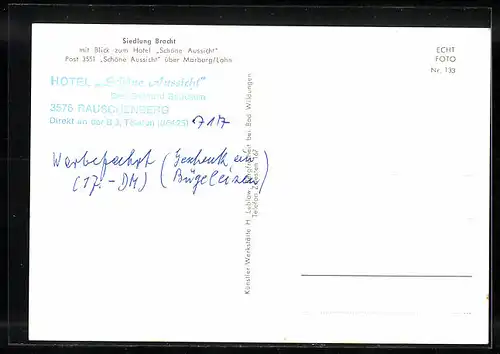 Siedlung Bracht
mit Blick zum Hotel „Schöne Aussicht"
Post 3551 „Schöne Aussicht" über Marburg/Lahn
ECHT
FOTO
Nr. 133
HOTEL „Schöne Aussicht"
3576 RAUSCHENBERG
Direkt an der B 3, Telefon (06425) 717
Werbefahrt (Geschenk ein
(17.-DM) Bügeleisen)
Künstler-Werkstätte H. Leblow, bei Bad Wildungen
Telefon Zwesten 167